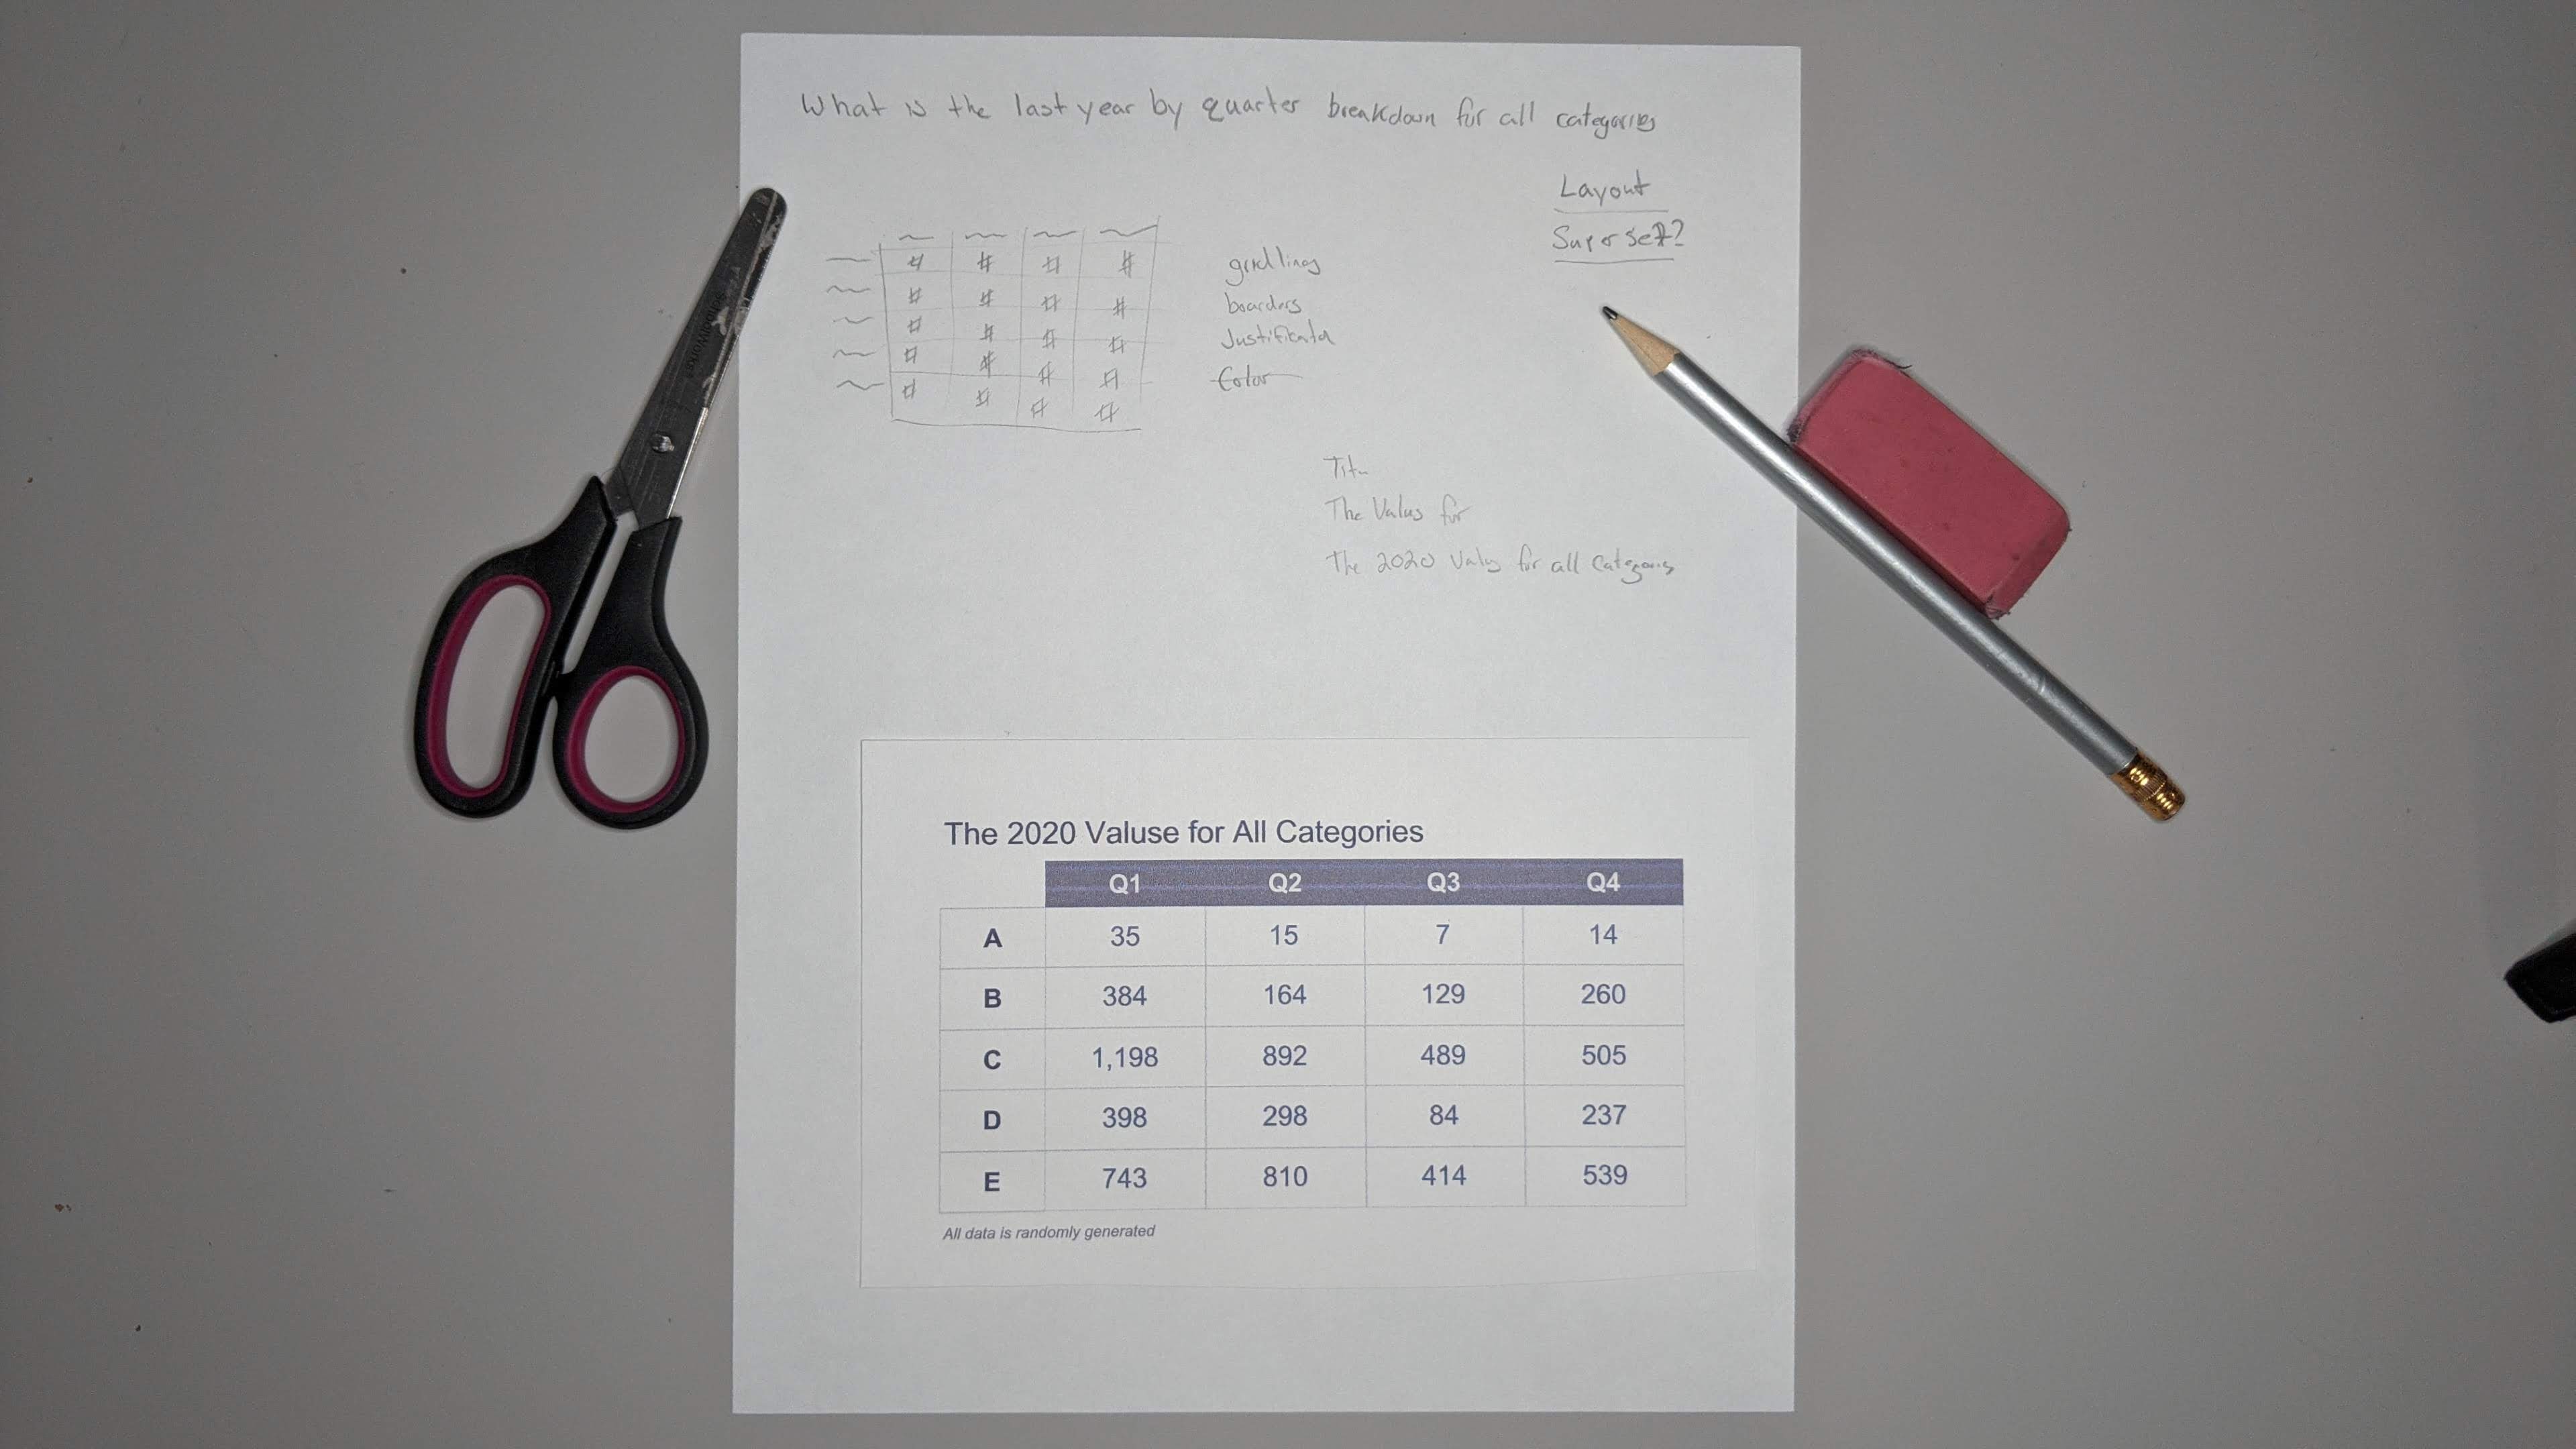 What is the last year by quarter breakdown for all categories
Layout
Superset?
# # # #
# # # #
# # # #
# # # #
# # # #
gridlines
boarders
Color
The Values for
The 2020 for all
The 2020 Valuse for All Categories
Q1 Q2 Q3 Q4
A 35 15 7 14
B 384 164 129 260
C 1,198 892 489 505
D 398 298 84 237
E 743 810 414 539
All data is randomly generated